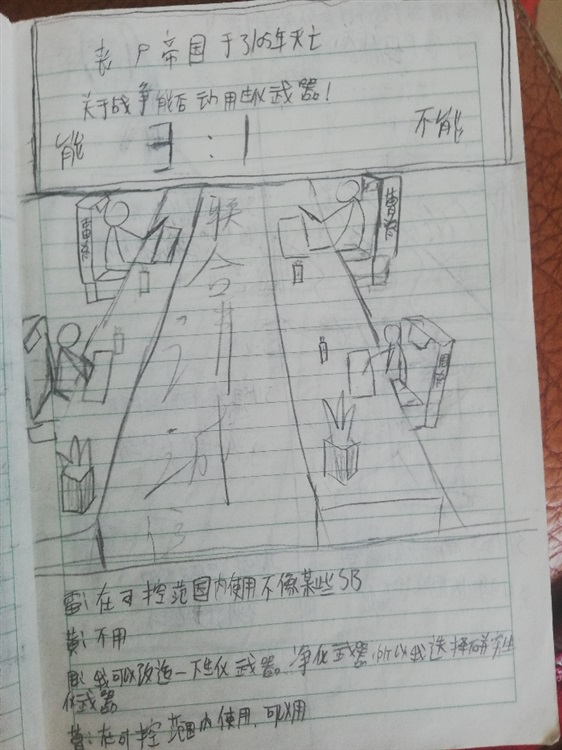 丧尸帝国于3105年灭亡
关于战争能否动用生化武器!
能 3:1 不能
联合
雷: 在可控范围内使用不像某些SB
黄: 不用
周: 我可以改造一下生化武器。净化武器,所以我选择研究生
化武器
曹: 在可控范围内使用,可以用